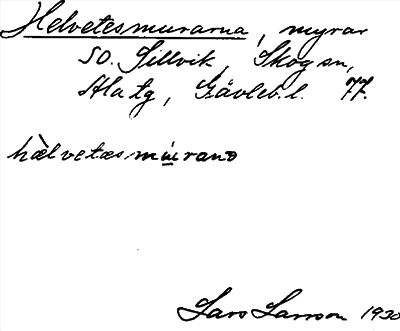 Helvetesmurarna, myrar
SO. Sillvik, Skog sn,
Ala tg, Gävleb. l. 77.
hælvetæsmu̠rana
Lars Larsson 1930